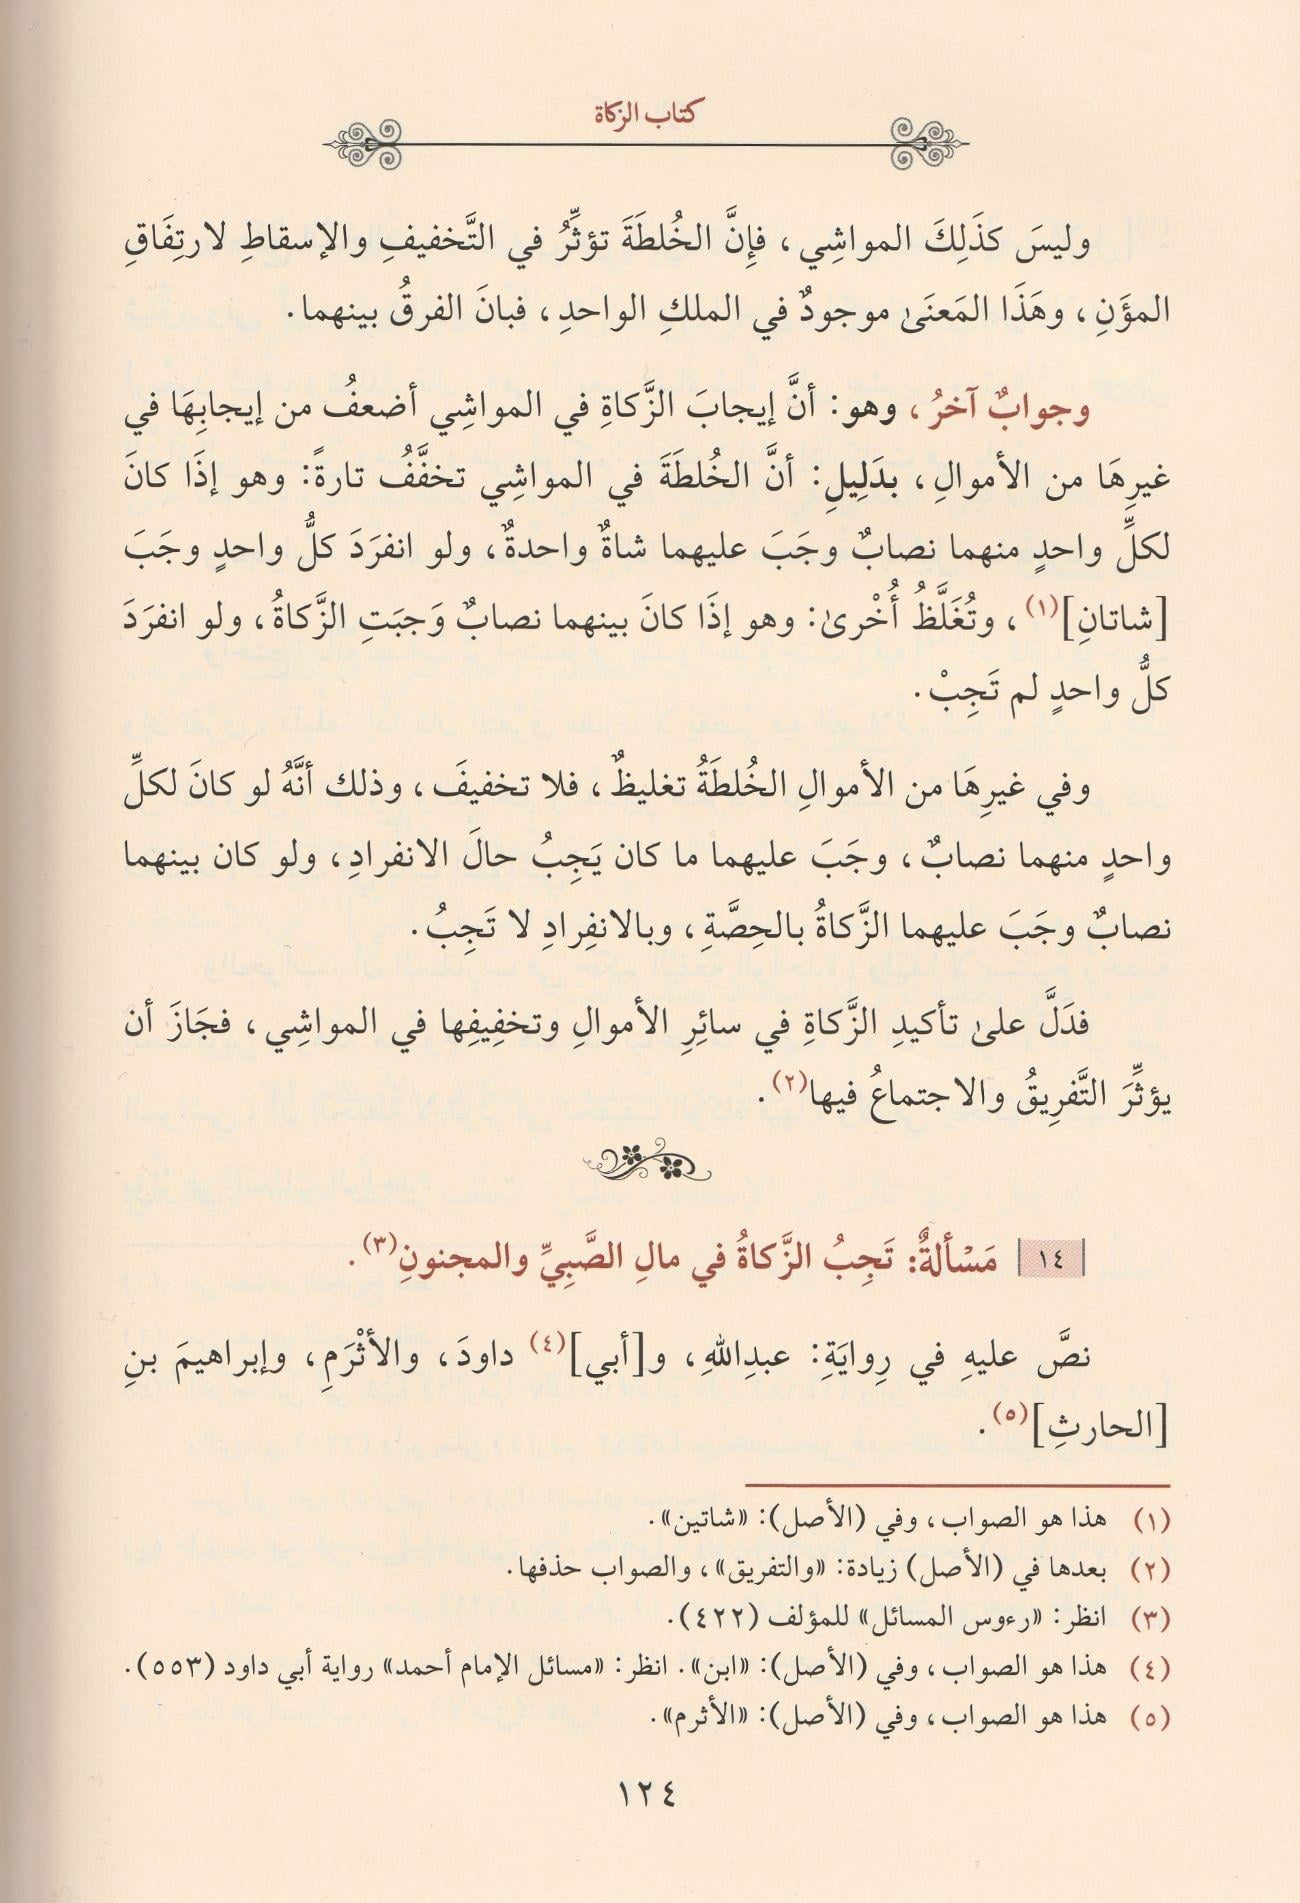 كتاب الزكاة
وليسَ كذَلِكَ المواشِي، فإِنَّ الخُلطَةَ تؤثِّرُ في التَّخفيفِ والإسقاطِ لارتِفَاقِ
المؤَنِ، وهَذَا المَعنَى موجودٌ في الملكِ الواحدِ، فبانَ الفرقُ بينهما.
وجوابٌ آخرُ، وهو: أنَّ إيجابَ الزَّكاةِ في المواشِي أضعفُ من إيجابِهَا في
غيرِهَا من الأموالِ، بدَلِيلِ: أنَّ الخُلطَةَ في المواشِي تخفَّفُ تارةً: وهو إذَا كانَ
لكلِّ واحدٍ منهما نصابٌ وجَبَ عليهما شاةٌ واحدةٌ، ولو انفرَدَ كلُّ واحدٍ وجَبَ
[شاتانِ](١)، وتُغَلَّظُ أُخْرىٰ: وهو إذَا كانَ بينهما نصابٌ وَجبَتِ الزَّكاةُ، ولو انفرَدَ
كلُّ واحدٍ لم تَجِبْ.
وفي غيرِهَا من الأموالِ الخُلطَةُ تغليظٌ، فلا تخفيفَ، وذلك أنَّهُ لو كانَ لكلِّ
واحدٍ منهما نصابٌ، وجَبَ عليهما ما كان يَجِبُ حالَ الانفرادِ، ولو كان بينهما
نصابٌ وجَبَ عليهما الزَّكاةُ بالحِصَّةِ، وبالانفِرادِ لا تَجِبُ.
فدَلَّ علىٰ تأكيدِ الزَّكاةِ في سائِرِ الأموالِ وتخفِيفِها في المواشِي، فجَازَ أن
يؤثِّرَ التَّفرِيقُ والاجتماعُ فيها(٢).
١٤ مَسْألةٌ: تَجِبُ الزَّكاةُ في مالِ الصَّبِيِّ والمجنونِ(٣).
نصَّ عليهِ في رِوايَةِ: عبدِاللهِ، و[أبي](٤) داودَ، والأثْرَمِ، وإبراهيمَ بنِ
[الحارثِ](٥).
(١) هذا هو الصواب، وفي (الأصل): «شاتين».
(٢) بعدها في (الأصل) زيادة: «والتفريق»، والصواب حذفها.
(٣) انظر: «رءوس المسائل» للمؤلف (٤٢٢).
(٤) هذا هو الصواب، وفي (الأصل): «ابن». انظر: «مسائل الإمام أحمد» رواية أبي داود (٥٥٣).
(٥) هذا هو الصواب، وفي (الأصل): «الأثرم».
١٢٤